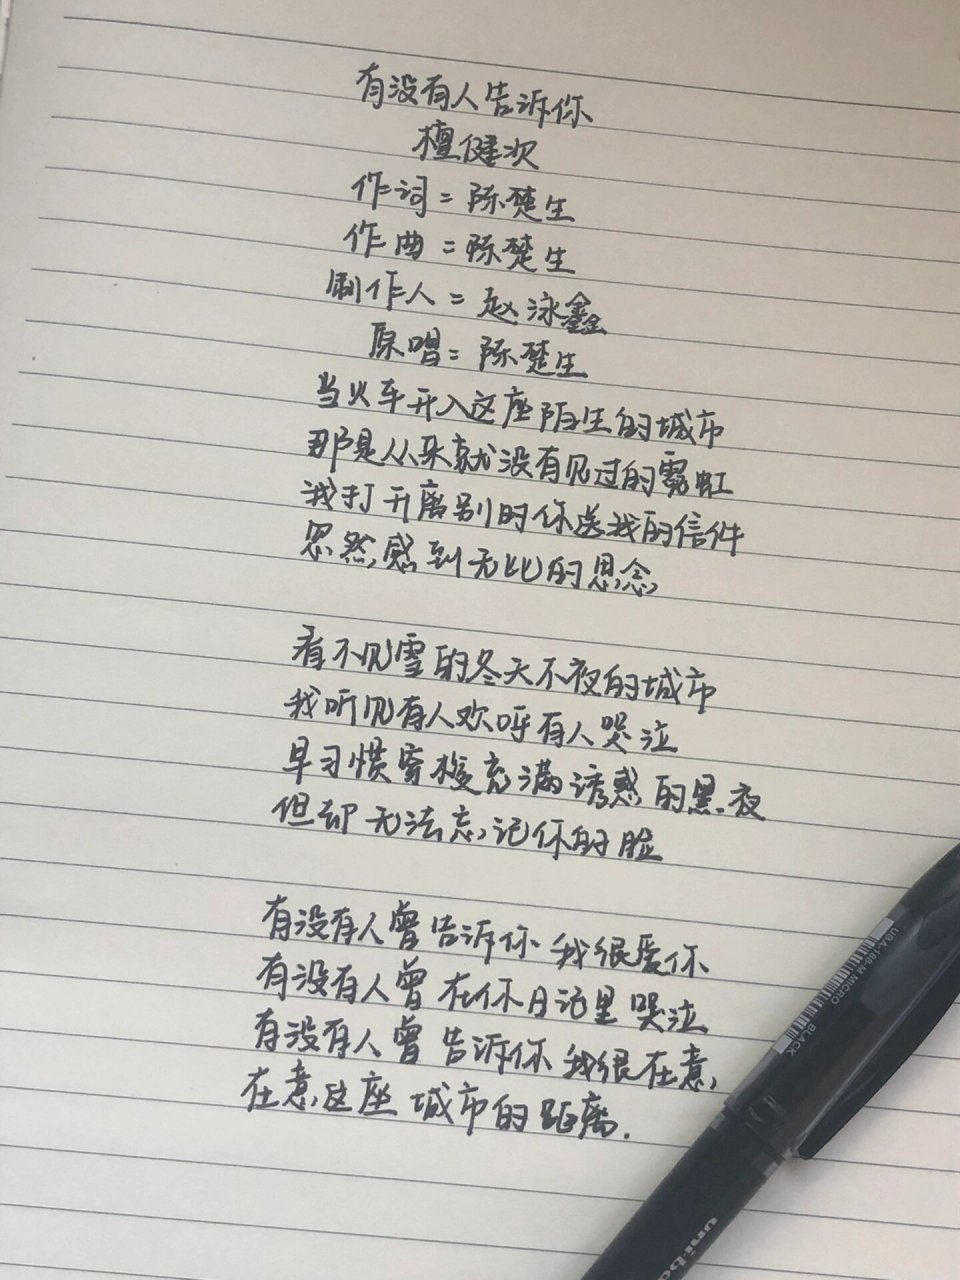 有没有人告诉你
檀健次
作词=陈楚生
作曲=陈楚生
制作人=赵泳鑫
原唱=陈楚生
当火车开入这座陌生的城市
那是从来就没有见过的霓虹
我打开离别时你送我的信件
忽然感到无比的思念
看不见雪的冬天不夜的城市
我听见有人欢呼有人哭泣
早习惯穿梭充满诱惑的黑夜
但却无法忘记你的脸
有没有人曾告诉你 我很爱你
有没有人曾在你日记里哭泣
有没有人曾告诉你 我很在意
在意这座城市的距离.
UBA-188-M MICRO
BLACK